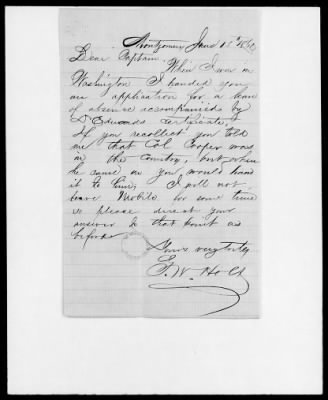 Montgomery Jany 18th 1860
Dear Captain,
When I was in
Washington I handed you
an application for a leave
of absence accompanied by
Dr Edwards certificate,
If you recollect you told
me that Col Cooper was
in the country, but when
he came in you would hand
it to him, I will not
leave Mobile for some time
so please direct your
answer to that point as
before
Yours very truly
W. Holt